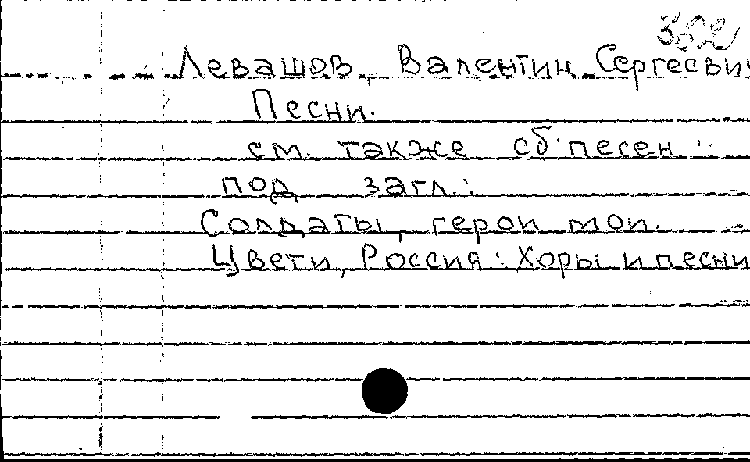 Левашов, Валентин Сергеевич
Песни.
см. также сб. песен
под загл.:
Солдаты, герои мои.
Цвети, Россия: Хоры и песни